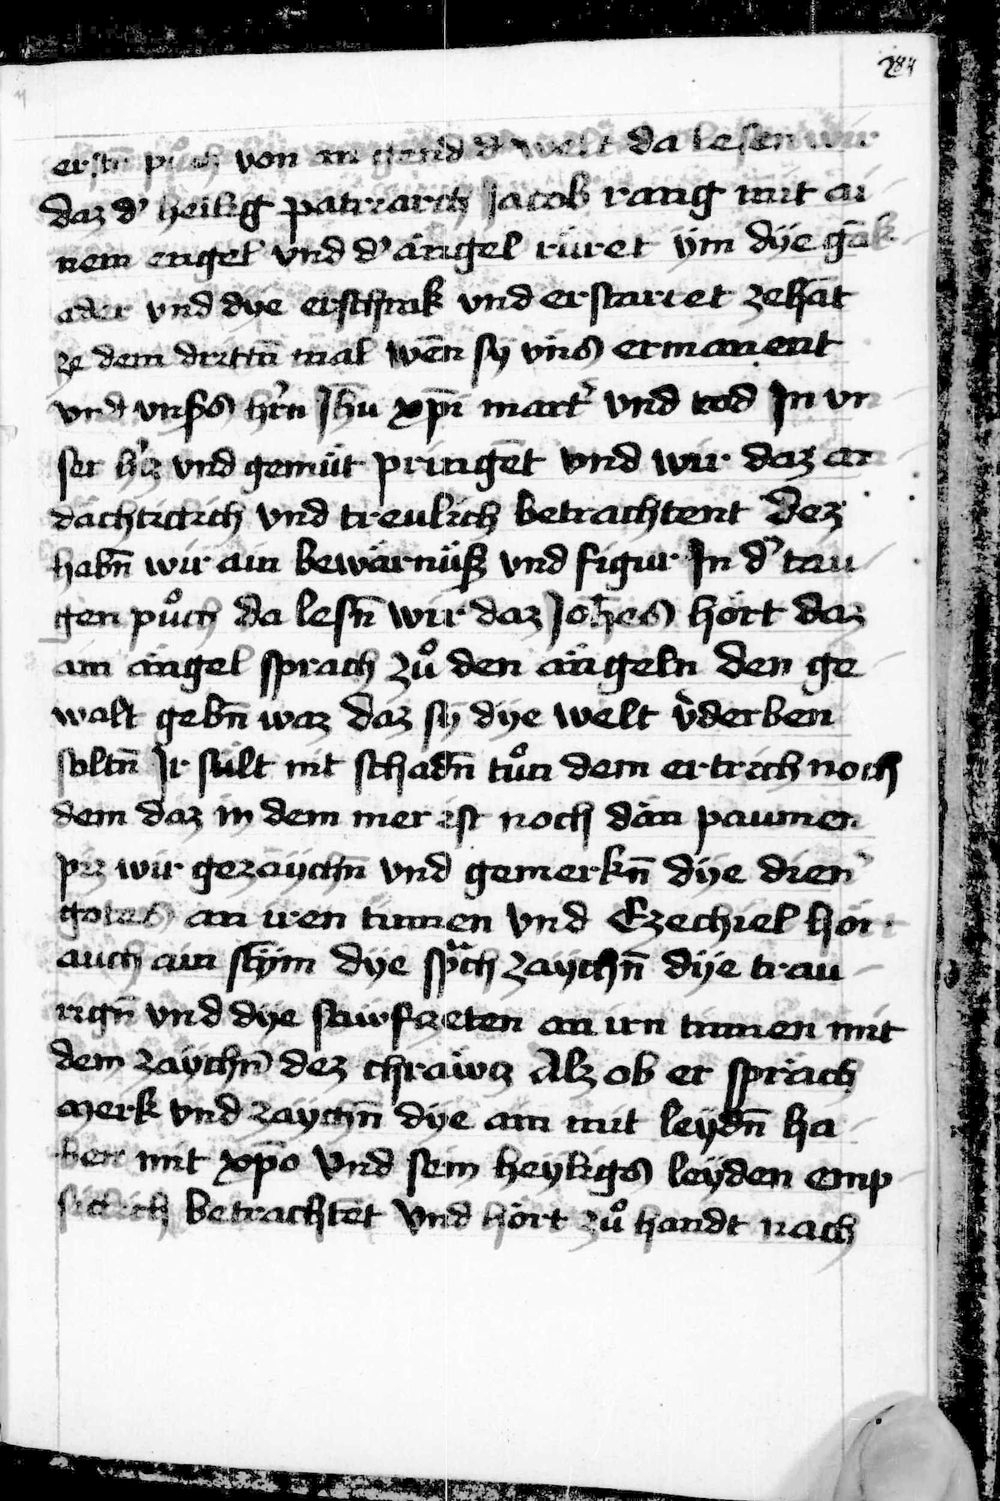 erstn̄ půch von an gend d' welt da lesen wir
daz d' heilig patriarch Jacob rang mit ai
nem engel vnd d' ängel rüret ym dye gāk
ader vnd dye erschrak vnd erstarret zehāt
ze dem drittn̄ mal wēn sy vn̄s ermanent
vnd vnsɜs hr̄n Jhū xp̄i martr̄ vnd tod Jn vn
ser hʼcz vnd gemüt pringēt vnd wir daz an
dächticlich vnd treulich betrachtent Dez
habn̄ wir ain bewärnüß vnd figur Jn d' tau
gen půch da lesn̄ wir daz Joh̄es hört daz
ain ängel sprach zů den ängeln den ge
walt gebn̄ waz daz sy dye welt v'derben
soltn̄ Jr sült nit schadn̄ tůn dem ertrich noch
dem daz in dem mer ist noch dän paumen
piz wir gezäychn̄ vnd gemerkn̄ dye dien'
gotes an iren tinnen vnd Ezechiel hört
auch ain stym̄ dye sprach zaychn̄ dye trau
rign̄ vnd dye säwfczeten an irn tinnen mit
dem zaychn̄ dez chräwcz Alz ob er spräch
merk vnd zaychn̄ dye ain mit leydn̄ ha
ben mit xp̄o Vnd sein heyligs leyden emp
siclich betrachtēt Vnd hört zů handt nach